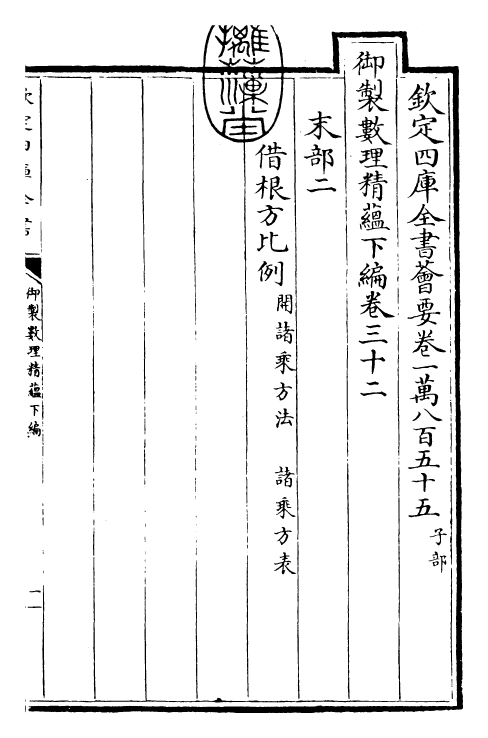 欽定四庫全書薈要卷一萬八百五十五 子部
御製數理精蘊下編卷三十二
末部二
借根方比例 開諸乘方法 諸乘方表
御製數理精蘊下編